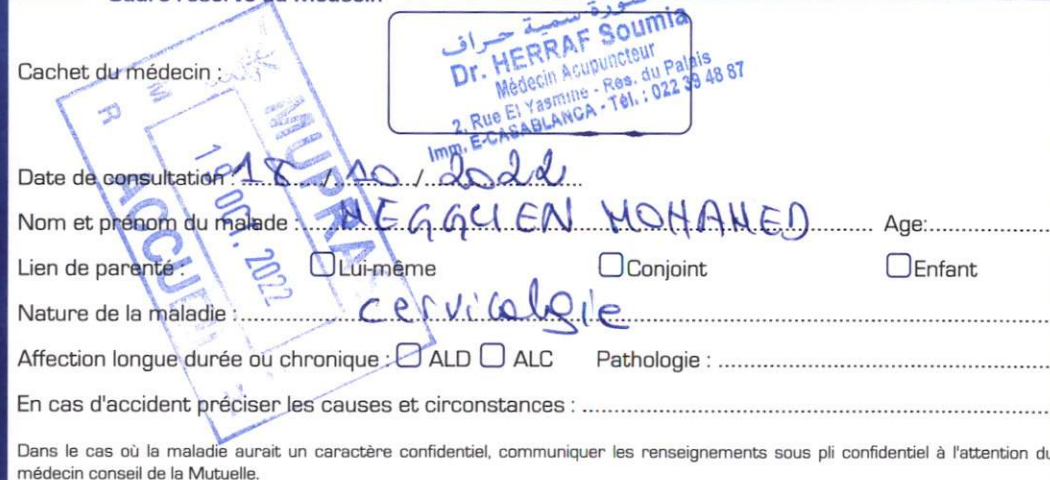 Cadre réservé au Médecin
سمية حراف
Dr. HERRAF Soumia
Médecin Acupuncteur
2, Rue El Yasmine - Res. du Palais
Imm. E-CASABLANCA - Tél. : 022 39 48 87
Cachet du médecin :
MUPRAS
ACCUEIL
19 OCT. 2022
Date de consultation : 18 / 10 / 2022
Nom et prénom du malade : MEGGUEN MOHAMED Age:
Lien de parenté : Lui-même Conjoint Enfant
Nature de la maladie : cervicalgie
Affection longue durée ou chronique : ALD ALC Pathologie :
En cas d'accident préciser les causes et circonstances :
Dans le cas où la maladie aurait un caractère confidentiel, communiquer les renseignements sous pli confidentiel à l'attention du
médecin conseil de la Mutuelle.